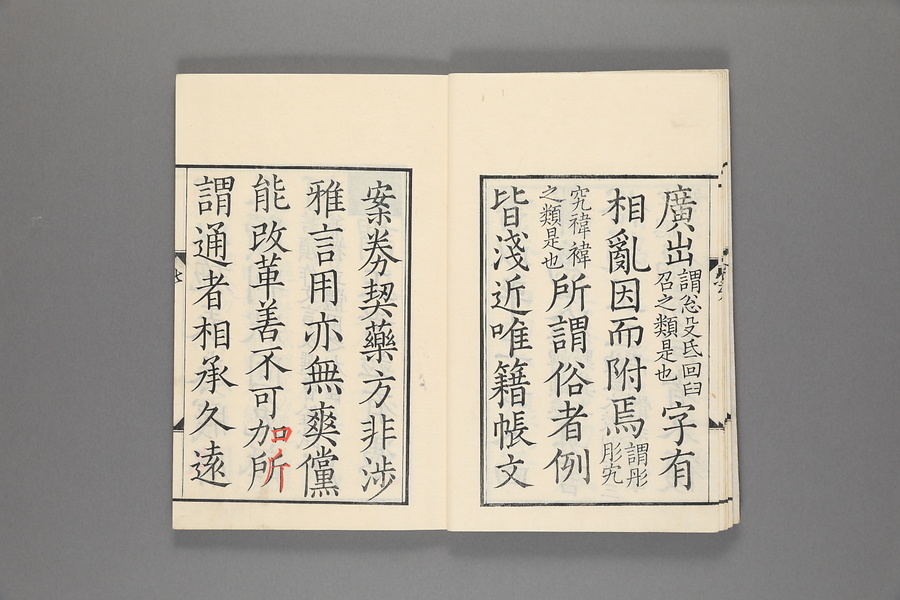 廣出謂忩殳氐回臼召之類是也字有
相亂因而附焉謂彤肜宄
究禕褘之類是也所謂俗者例
皆淺近唯籍帳文
案券契藥方非涉
雅言用亦無爽儻
能改革善不可加所
謂通者相承久遠